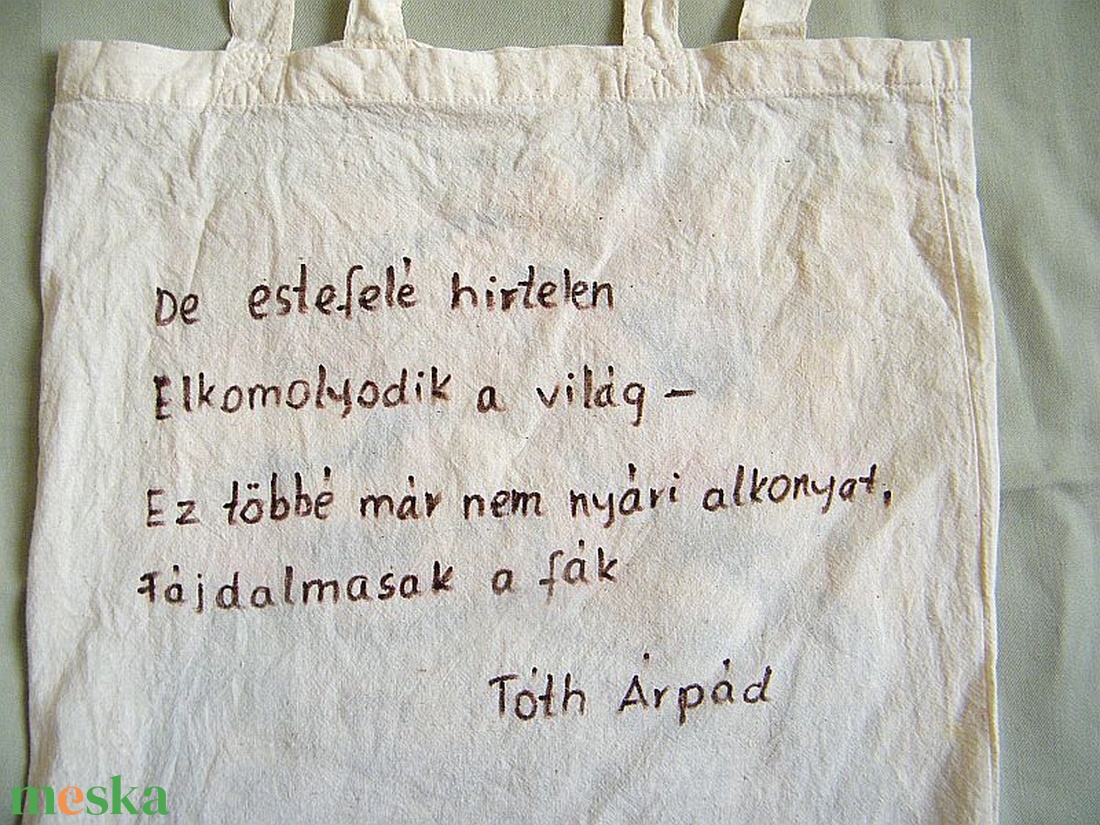 De estefelé hirtelen
Elkomolyodik a világ –
Ez többé már nem nyári alkonyat,
Fájdalmasak a fák
Tóth Árpád
meska